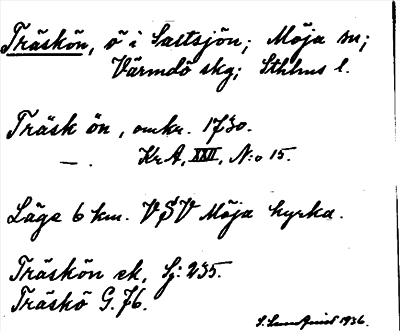 Träskön, ö i Saltsjön; Möja sn;
Värmdö skg; Sthlms l.
Träsk ön, omkr. 1730.
—. KrA, XXII, N:o 15.
Läge 6 km. VSV Möja kyrka.
Träskön ek, Sj: 235.
Träskö G. 76.
S. Lundquist 1936.